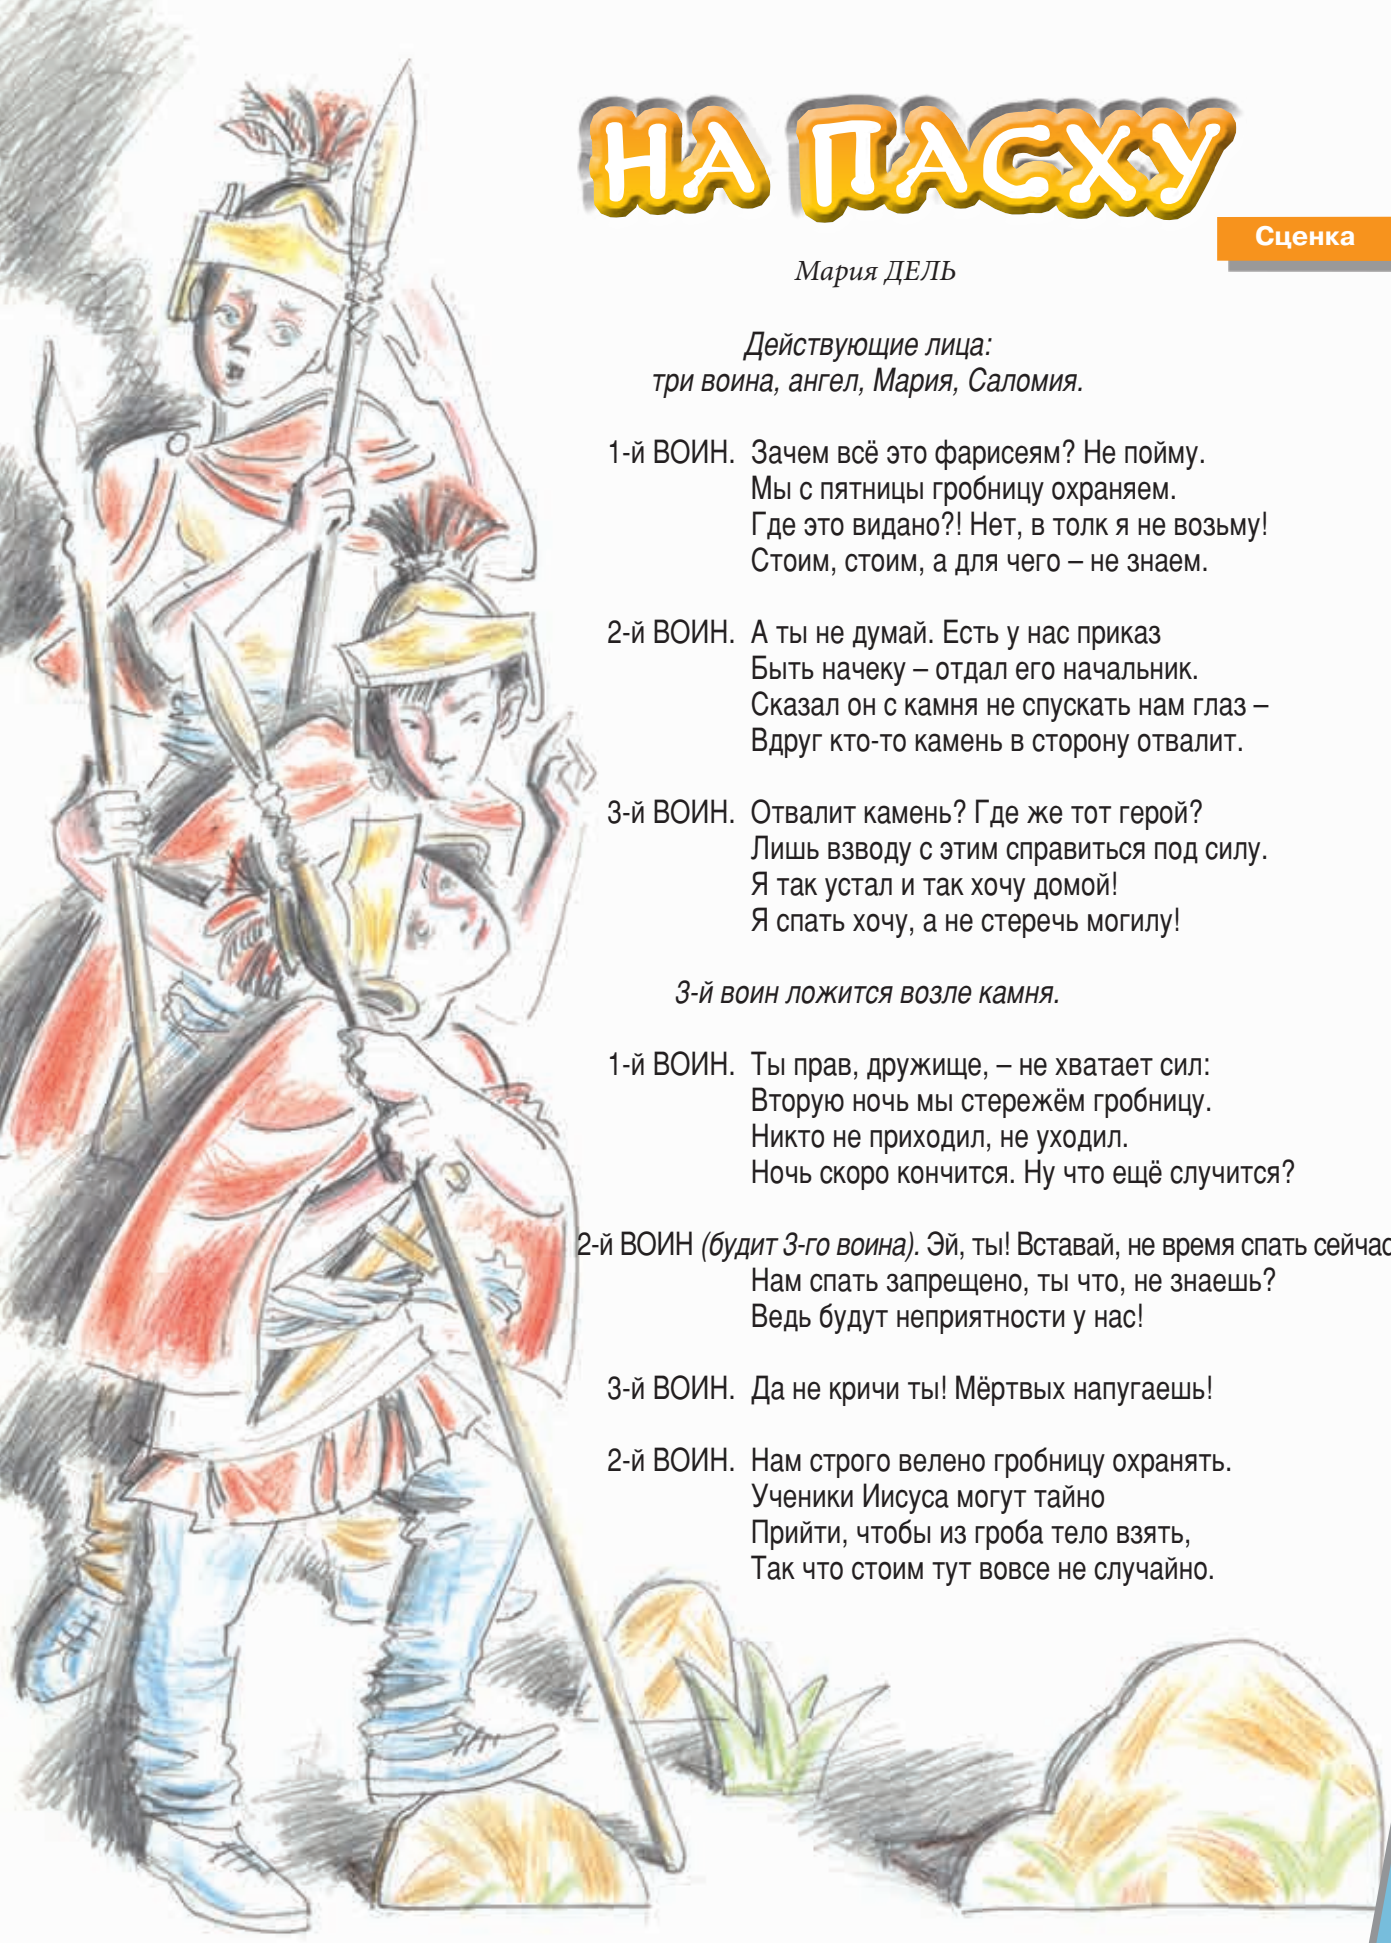 НА ПАСХУ
Сценка
Мария ДЕЛЬ
Действующие лица:
три воина, ангел, Мария, Саломия.
1-й ВОИН. Зачем всё это фарисеям? Не пойму.
Мы с пятницы гробницу охраняем.
Где это видано?! Нет, в толк я не возьму!
Стоим, стоим, а для чего – не знаем.
2-й ВОИН. А ты не думай. Есть у нас приказ
Быть начеку – отдал его начальник.
Сказал он с камня не спускать нам глаз –
Вдруг кто-то камень в сторону отвалит.
3-й ВОИН. Отвалит камень? Где же тот герой?
Лишь взводу с этим справиться под силу.
Я так устал и так хочу домой!
Я спать хочу, а не стеречь могилу!
3-й воин ложится возле камня.
1-й ВОИН. Ты прав, дружище, – не хватает сил:
Вторую ночь мы стережём гробницу.
Никто не приходил, не уходил.
Ночь скоро кончится. Ну что ещё случится?
2-й ВОИН (будит 3-го воина). Эй, ты! Вставай, не время спать сейчас
Нам спать запрещено, ты что, не знаешь?
Ведь будут неприятности у нас!
3-й ВОИН. Да не кричи ты! Мёртвых напугаешь!
2-й ВОИН. Нам строго велено гробницу охранять.
Ученики Иисуса могут тайно
Прийти, чтобы из гроба тело взять,
Так что стоим тут вовсе не случайно.